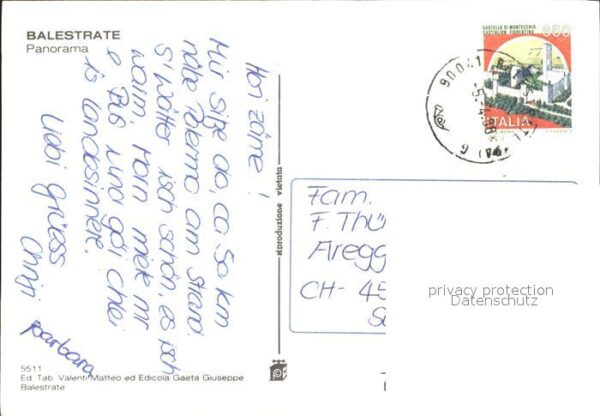 BALESTRATE
Panorama
Hoi zäme!
Mir sitze do ca 50 km
nöbe Palermo am Strand.
S'Wätter isch schön, es isch
warm, morn miete mr
e Bus und göi chlei
is landesinnere.
Liebi grüess
Chrigi
Barbara
riproduzione vietata
CASTELLO DI MONTECCHIO
CASTIGLION FIORENTINO
650
ITALIA
90041
Fam.
F. Thü
Aregg
CH- 45
privacy protection
Datenschutz
5511
Ed. Tab. Valenti Matteo ed Edicola Gaeta Giuseppe
Balestrate